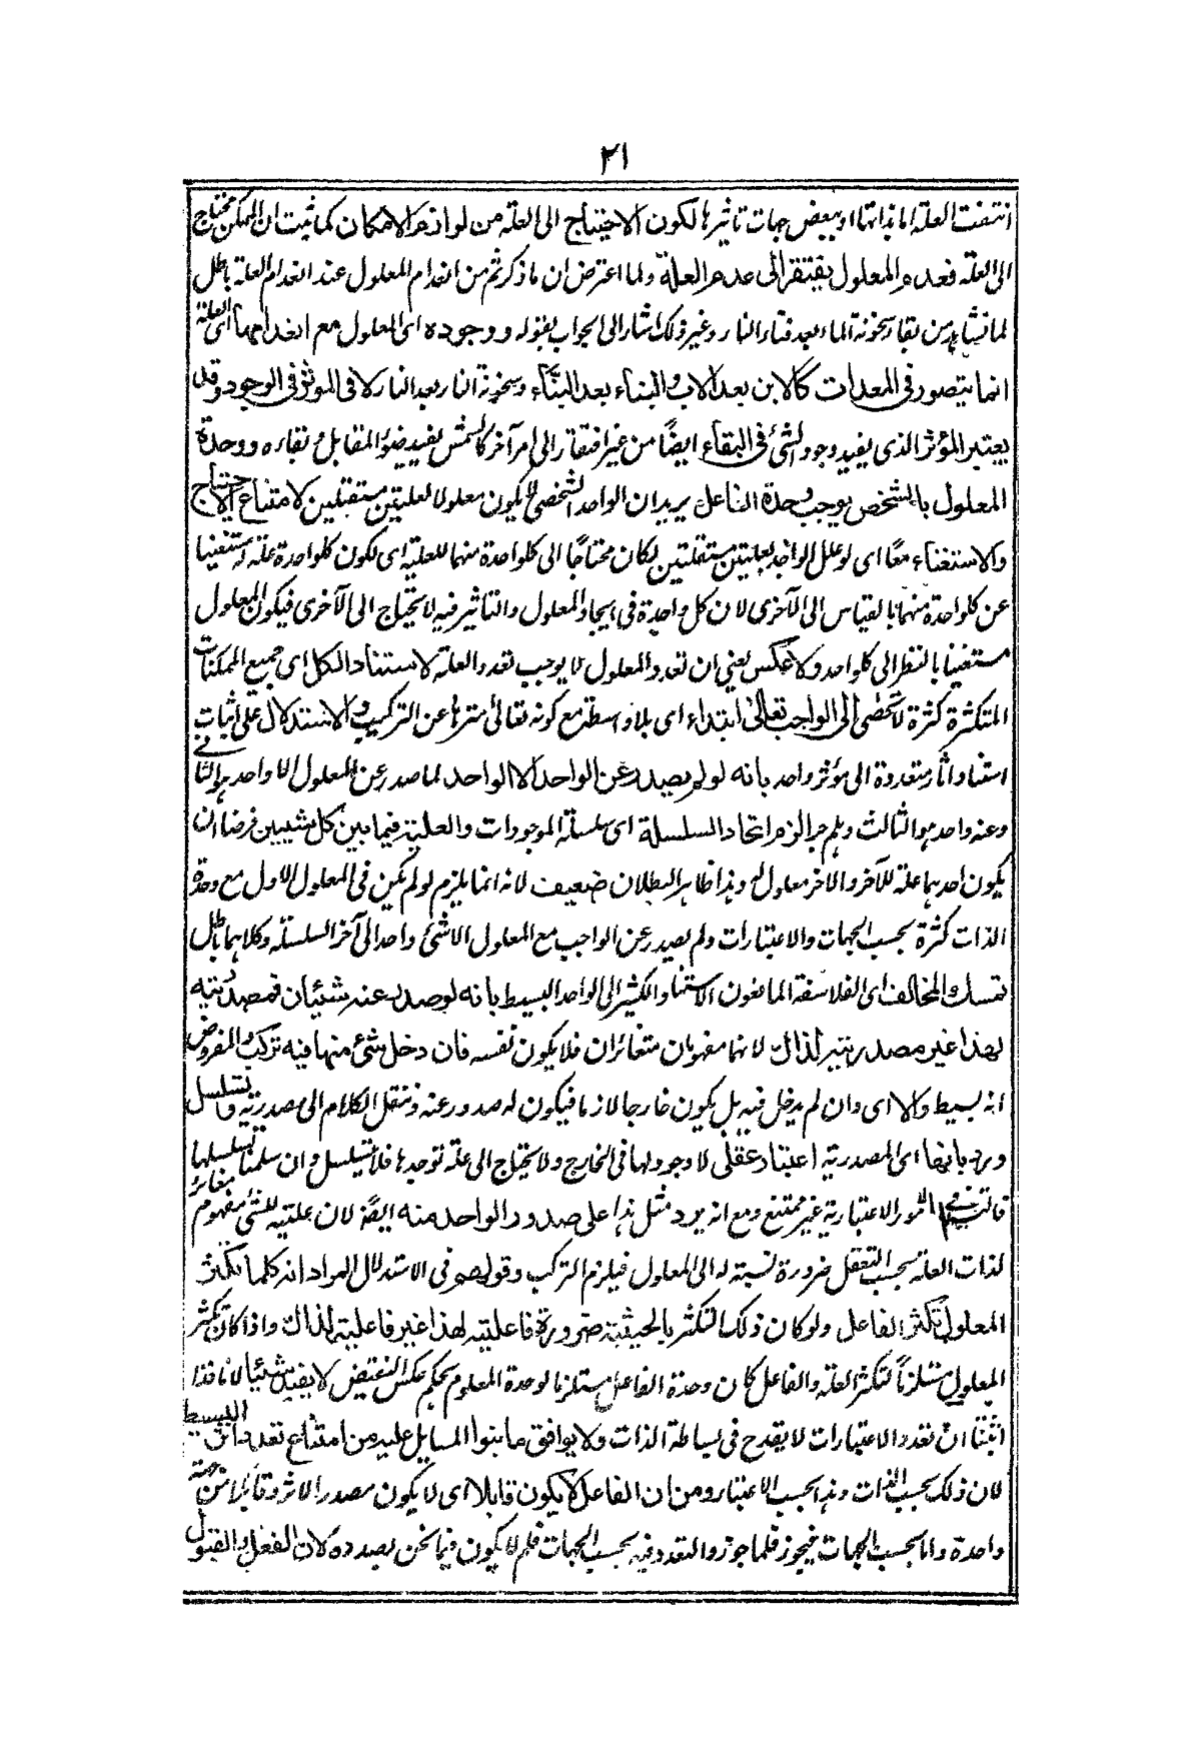 ٢١
انتفت العلة اما بذاتها او ببعض جهات تاثيرها لكون الاحتياج الى العلة من لوازم الامكان كما ثبت ان الممكن محتاج
الى العلة فعدم المعلول يفتقر الى عدم العلة ولما اعترض ان ما ذكرتم من انعدام المعلول عند انعدام العلة باطل
لما نشاهد من بقاء سخونة الماء بعد فناء النار وغير ذلك اشار الى الجواب بقوله ووجوده اى المعلول مع انعدامها اى العلة
انما يتصور فى المعدات كالابن بعد الاب والبناء بعد البناء وسخونة النار بعد النار لا فى الموثر فى الوجود وقد
يعتبر المؤثر الذى يفيد وجود الشئ فى البقاء ايضًا من غير افتقار الى امر آخر كالشمس يفيد ضوء المقابل وبقاءه ووحدة
المعلول بالشخص يوجب وحدة الفاعل يريد ان الواحد الشخصى لا يكون معلولا لعلتين مستقلتين لامتناع الاحتياج
والاستغناء معًا اى لو علل الواحد بعلتين مستقلتين لكان محتاجًا الى كلواحدة منهما للعلية اى لكون كلواحدة علة له مستغنيا
عن كلواحدة منهما بالقياس الى الآخرى لان كل واحدة فى ايجاد المعلول والتاثير فيه لا تحتاج الى الآخرى فيكون المعلول
مستغنيا بالنظر الى كلواحد ولا عكس يعني ان تعدد المعلول لا يوجب تعدد العلة لاستناد الكل اى جميع الممكنات
المتكثرة كثرة لا تحصى الى الواجب تعالى ابتداء اى بلا واسطة مع كونه تعالى منزها عن التركيب والاستدلال على اثبات
استناد اثار متعددة الى مؤثر واحد بانه لو لم يصدر عن الواحد الا الواحد لما صدر عن المعلول الا واحد هو الثانى
وعنه واحد هو الثالث وهلم جرا لزم اتحاد السلسلة اى سلسلة الموجودات والعلية فيما بين كل شيئين فرضا ان
يكون احدهما علة للآخر والاخر معلول له وهذا ظاهر البطلان ضعيف لانه انما يلزم لو لم يكن فى المعلول الاول مع وحدة
الذات كثرة بحسب الجهات والاعتبارات ولم يصدر عن الواجب مع المعلول الاشئ واحد الى آخر السلسلة وكلاهما باطل
تمسك المخالف اى الفلاسفة المانعون لاستناد الكثير الى الواحد البسيط بانه لو صدر عنه شيئان فمصدريته
لهذا غير مصدريته لذاك لانهما مفهومان متغائران فلا يكون نفسه فان دخل شئ منها فيه تركب والمفروض
انه بسيط والا اى وان لم يدخل فيه بل يكون خارجا لازما فيكون له صدور عنه وننقل الكلام الى مصدريته فا يتسلسل
ورد بانها اى المصدرية اعتباد عقلى لا وجود لها فى الخارج ولا تحتاج الى علة توجدها فلا يتسلسل وان سلمنا تسلسلها
فالتس فى الامور الاعتبارية غير ممتنع ومع انه يرد مثل هذا على صدور الواحد منه ايضًا لان علتيه للشئ مفهوم مغائر
لذات العلة بحسب التعقل ضرورة نسبته له الى المعلول فيلزم التركب وقولهم فى الاستدلال المراد انه كلما تكثر
المعلول تكثر الفاعل ولو كان ذلك التكثر بالحيثية ضرورة فاعليته لهذا غير فاعليته لذاك واذا كان تكثر
المعلول مستلزمًا لتكثر العلة والفاعل كان وحدة الفاعل مستلزما لوحدة المعلوم بحكم عكس النقيض لا يفيد شيئا لانا قد
اثبتنا ان تعدد الاعتبارات لا يقدح فى بساطة الذات ولا يوافق ما بنوا المسايل عليه من امتناع تعدد اثر البسيط
لان ذلك بحسب الذات وهذا بحسب الاعتبار ومن ان الفاعل لا يكون قابلا اى لا يكون مصدر الاثر وقابلا من جهة
واحدة واما بحسب الجهات فيجوز فلما جوزوا التعدد فيه بحسب الجهات فلم لا يكون فيما نحن بصدده لان الفعل والقبول